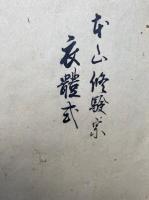 本山修験宗
衣體式